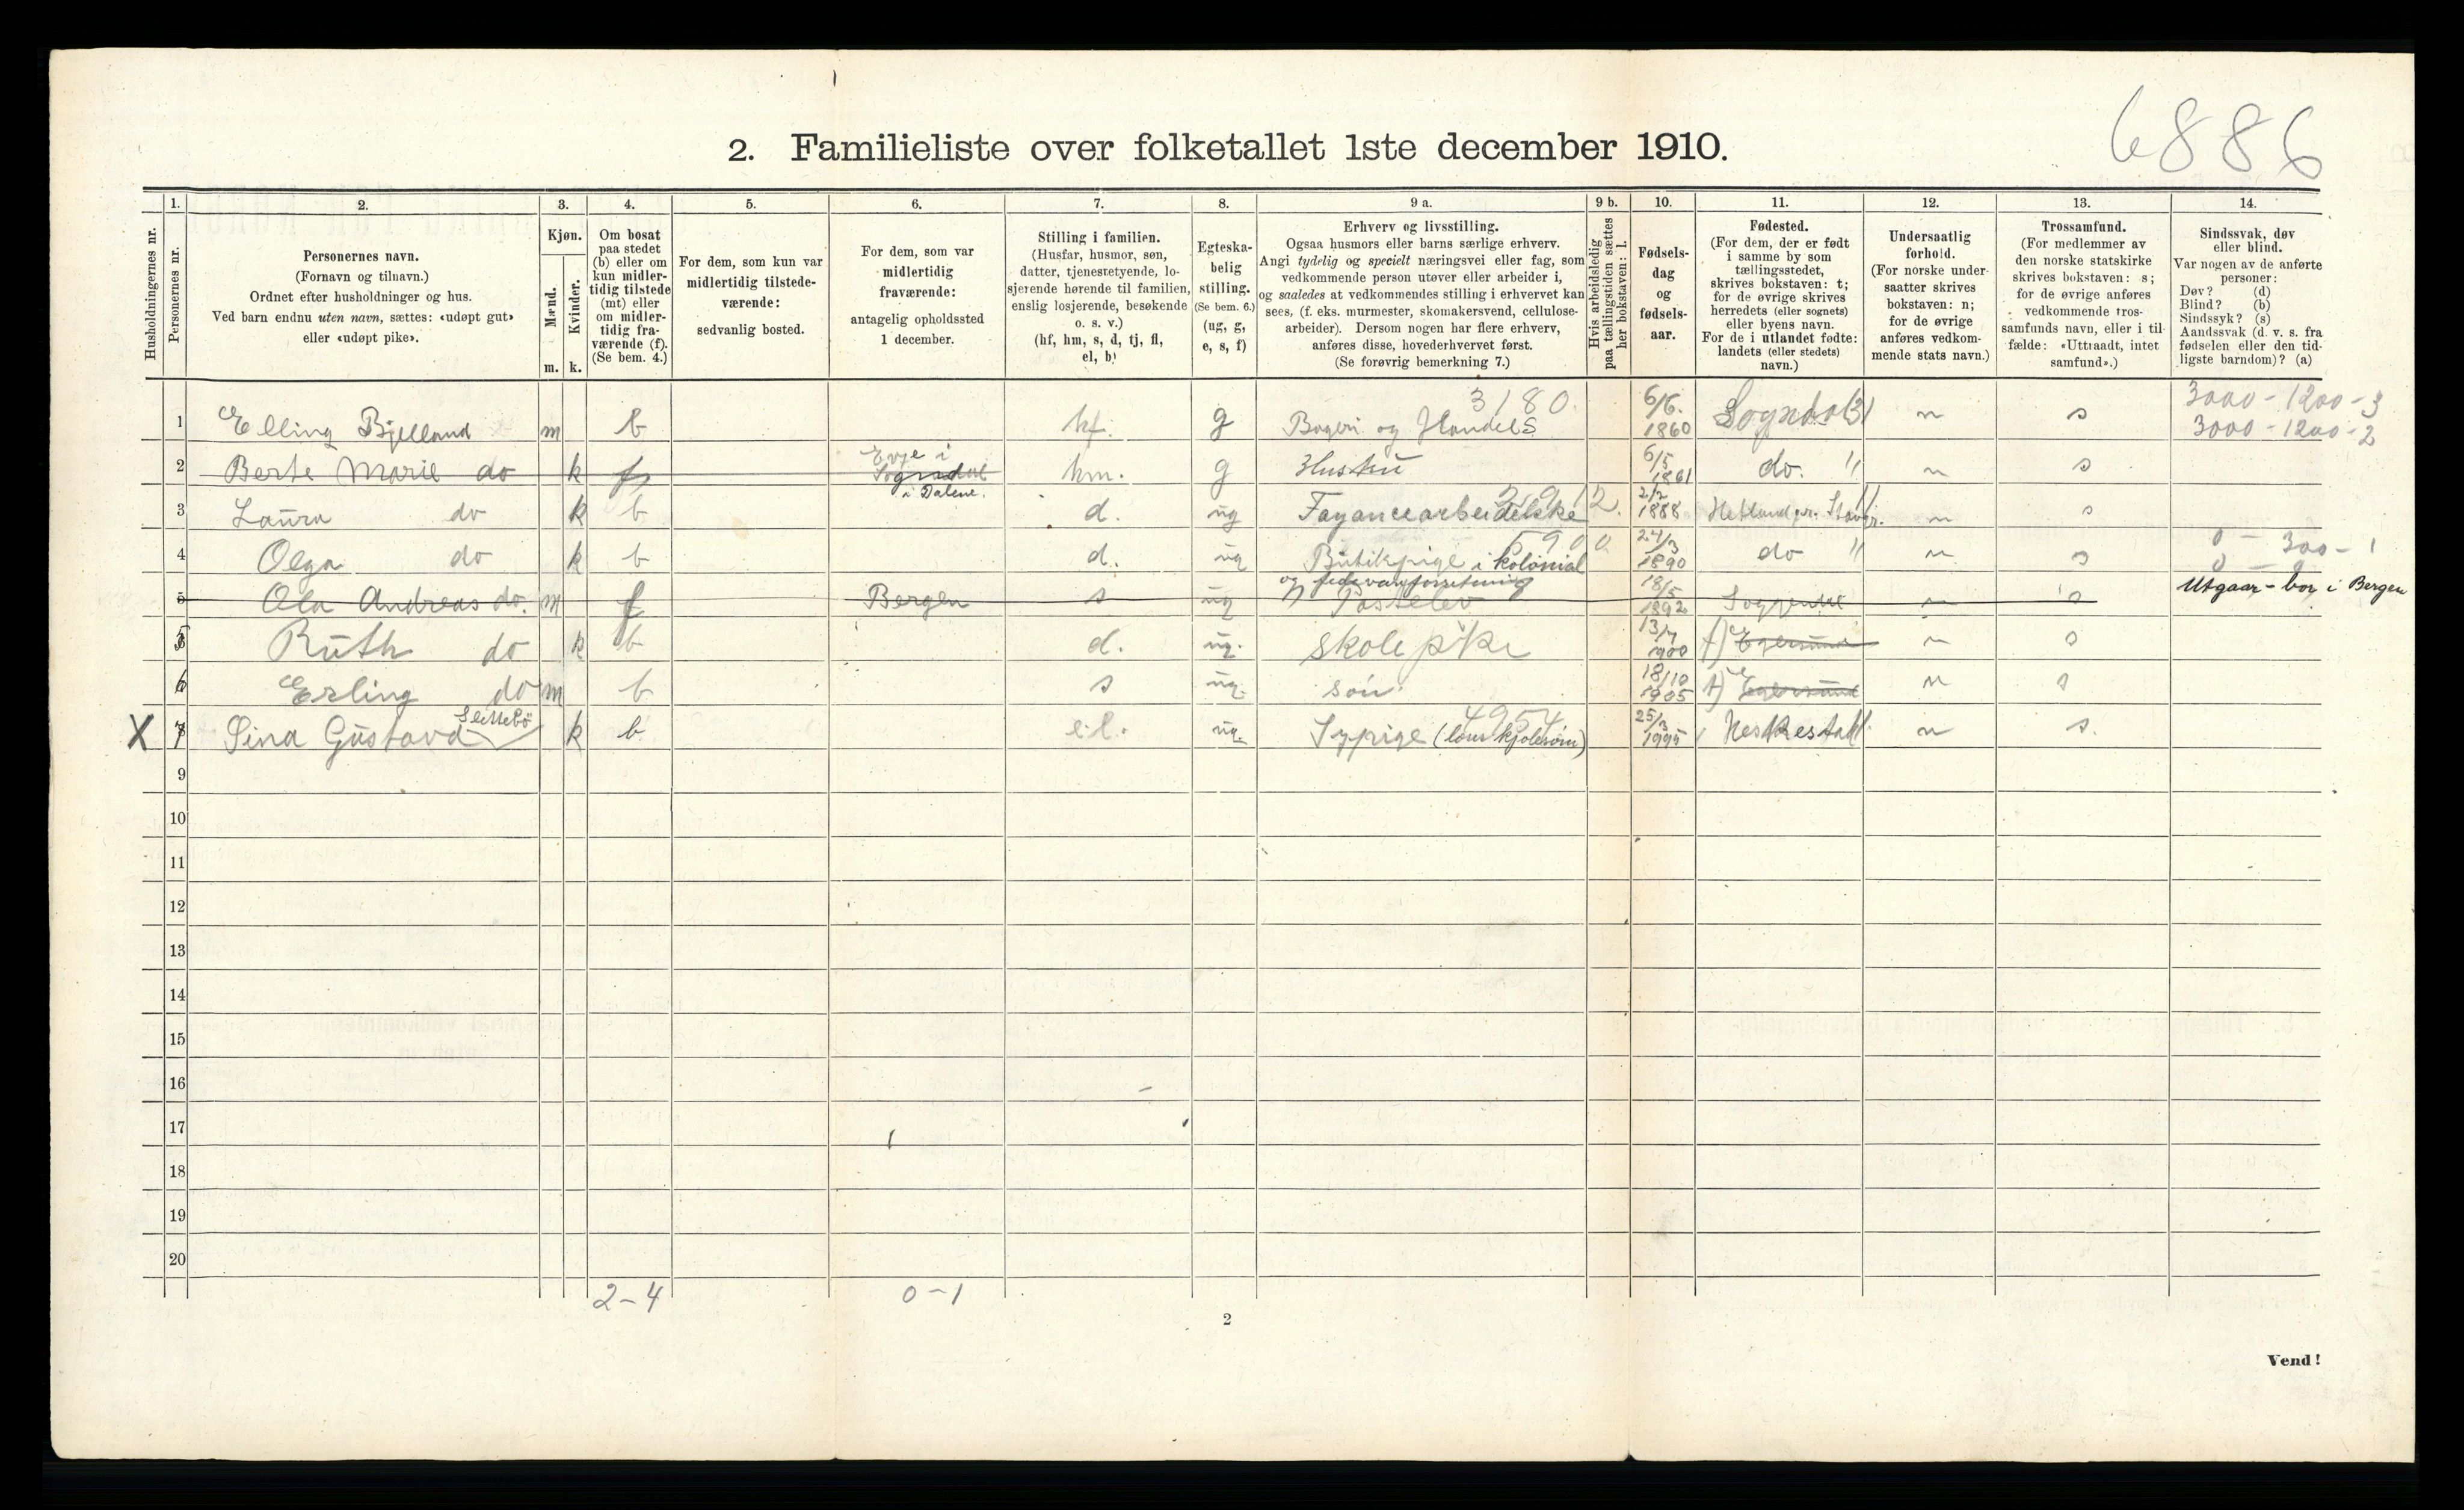 6886
2. Familieliste over folketallet 1ste december 1910.
1. 2. 3. 4. 5. 6. 7. 8. 9 a. 9 b. 10. 11. 12. 13. 14.
Husholdningernes nr.
Personernes nr.
Personernes navn.
(Fornavn og tilnavn.)
Ordnet efter husholdninger og hus.
Ved barn endnu uten navn, sættes: «udøpt gut»
eller «udøpt pike».
Kjøn.
Mænd.
Kvinder.
m. k.
Om bosat
paa stedet
(b) eller om
kun midler-
tidig tilstede
(mt) eller
om midler-
tidig fra-
værende (f).
(Se bem. 4.)
For dem, som kun var
midlertidig tilstede-
værende:
sedvanlig bosted.
For dem, som var
midlertidig
fraværende:
antagelig opholdssted
1 december.
Stilling i familien.
(Husfar, husmor, søn,
datter, tjenestetyende, lo-
sjerende hørende til familien,
enslig losjerende, besøkende
o. s. v.)
(hf, hm, s, d, tj, fl,
el, b)
Egteska-
belig
stilling.
(Se bem. 6.)
(ug, g,
e, s, f)
Erhverv og livsstilling.
Ogsaa husmors eller barns særlige erhverv.
Angi tydelig og specielt næringsvei eller fag, som
vedkommende person utøver eller arbeider i,
og saaledes at vedkommendes stilling i erhvervet kan
sees, (f. eks. murmester, skomakersvend, cellulose-
arbeider). Dersom nogen har flere erhverv,
anføres disse, hovederhvervet først.
(Se forøvrig bemerkning 7.)
Hvis arbeidsledig
paa tællingstiden sættes
her bokstaven: l.
Fødsels-
dag
og
fødsels-
aar.
Fødested.
(For dem, der er født
i samme by som
tællingsstedet,
skrives bokstaven: t;
for de øvrige skrives
herredets (eller sognets)
eller byens navn.
For de i utlandet fødte:
landets (eller stedets)
navn.)
Undersaatlig
forhold.
(For norske under-
saatter skrives
bokstaven: n;
for de øvrige
anføres vedkom-
mende stats navn.)
Trossamfund.
(For medlemmer av
den norske statskirke
skrives bokstaven: s;
for de øvrige anføres
vedkommende tros-
samfunds navn, eller i til-
fælde: «Uttraadt, intet
samfund».)
Sindssvak, døv
eller blind.
Var nogen av de anførte
personer:
Døv? (d)
Blind? (b)
Sindssyk? (s)
Aandssvak (d. v. s. fra
fødselen eller den tid-
ligste barndom)? (a)
3180. 3000 - 1200 - 3
1 Elling Bjelland m b hf. g Bageri og Handels 6/6. 1860 Sogndal n s 3000 - 1200 - 2
2 Berte Marie do k f Evje i Sogndal i Dalene. hm. g Hustru 6/5 1861 do. " n s
3 Laura do k b d. ug Fayancearbeiderske 2912. 2/2 1888 Hetland pr. Stavgr. n s
4 Olga do k b d. ug Butikpige i kolonial og fedevareforretning 5900 24/3 1890 do " n s 0 - 300 - 1
5 Ola Andreas do. m f Bergen s ug Postelev 18/5 1892 Soggendal n s Utgaar - bor i Bergen
5 Ruth do k b d. ug. skolepike 13/7 1900 t) Egersund n s
6 Erling do m b s ug. søn 18/10 1905 t) Egersund n s
X 7 Sina Gustava Slettebö k b el. ug. Sypige (lærer kjolesöm) 4954 25/3 1995 Heskestad n s.
9
10
11
12
13
14
15
16
17
18
19
20
2-4 0-1
2
Vend!